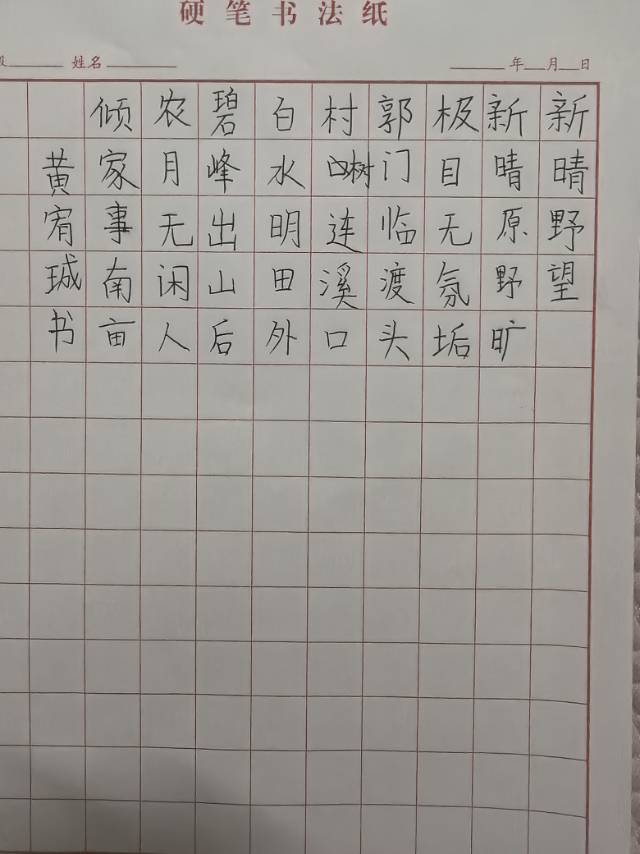 硬笔书法纸
姓名 年 月 日
新晴野望
新晴原野旷
极目无氛垢
郭门临渡头
村树连溪口
白水明田外
碧峰出山后
农月无闲人
倾家事南亩
黄宥珹书